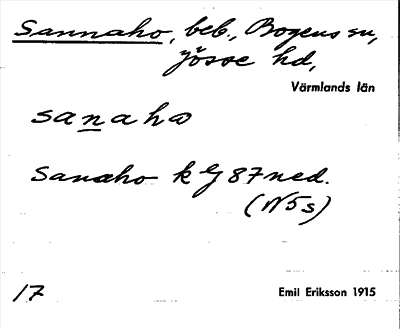 Sannaho, beb., Bogens sn,
Jösse hd,
Värmlands län
sanaho
Sanaho k G 87 ned.
(N5s)
17
Emil Eriksson 1915